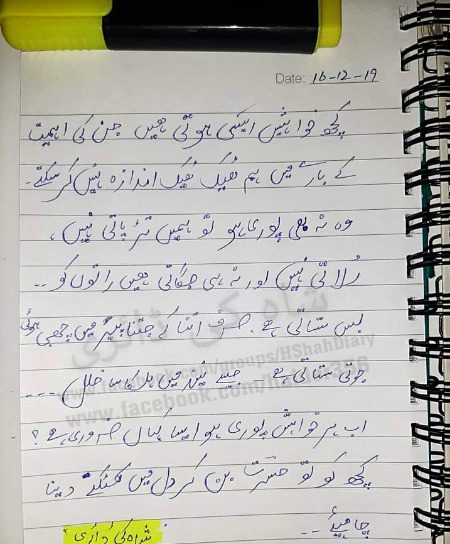 Date: 16-12-19
کچھ خواہشیں ایسی ہوتی ہیں جن کی اہمیت
کے بارے میں ہم ٹھیک ٹھیک اندازہ نہیں کر سکتے۔
وہ نہ بھی پوری ہو تو ہمیں تڑپاتی نہیں،
رُلاتی نہیں اور نہ ہی جگاتی ہیں راتوں کو ..
بس ستاتی ہے، صرف اتنا کے جتنا پیر میں چبھی ہوئی
جوتی ستاتی ہے.. جیسے نیند میں ہلکا سا خلل ...
اب ہر خواہش پوری ہو ایسا کہاں ضروری ہے؟
کچھ کو تو حسرت بن کر دل میں کھٹکنے دینا
چاہیئے ..
شاہ کی ڈائری
شاہ کی ڈائری